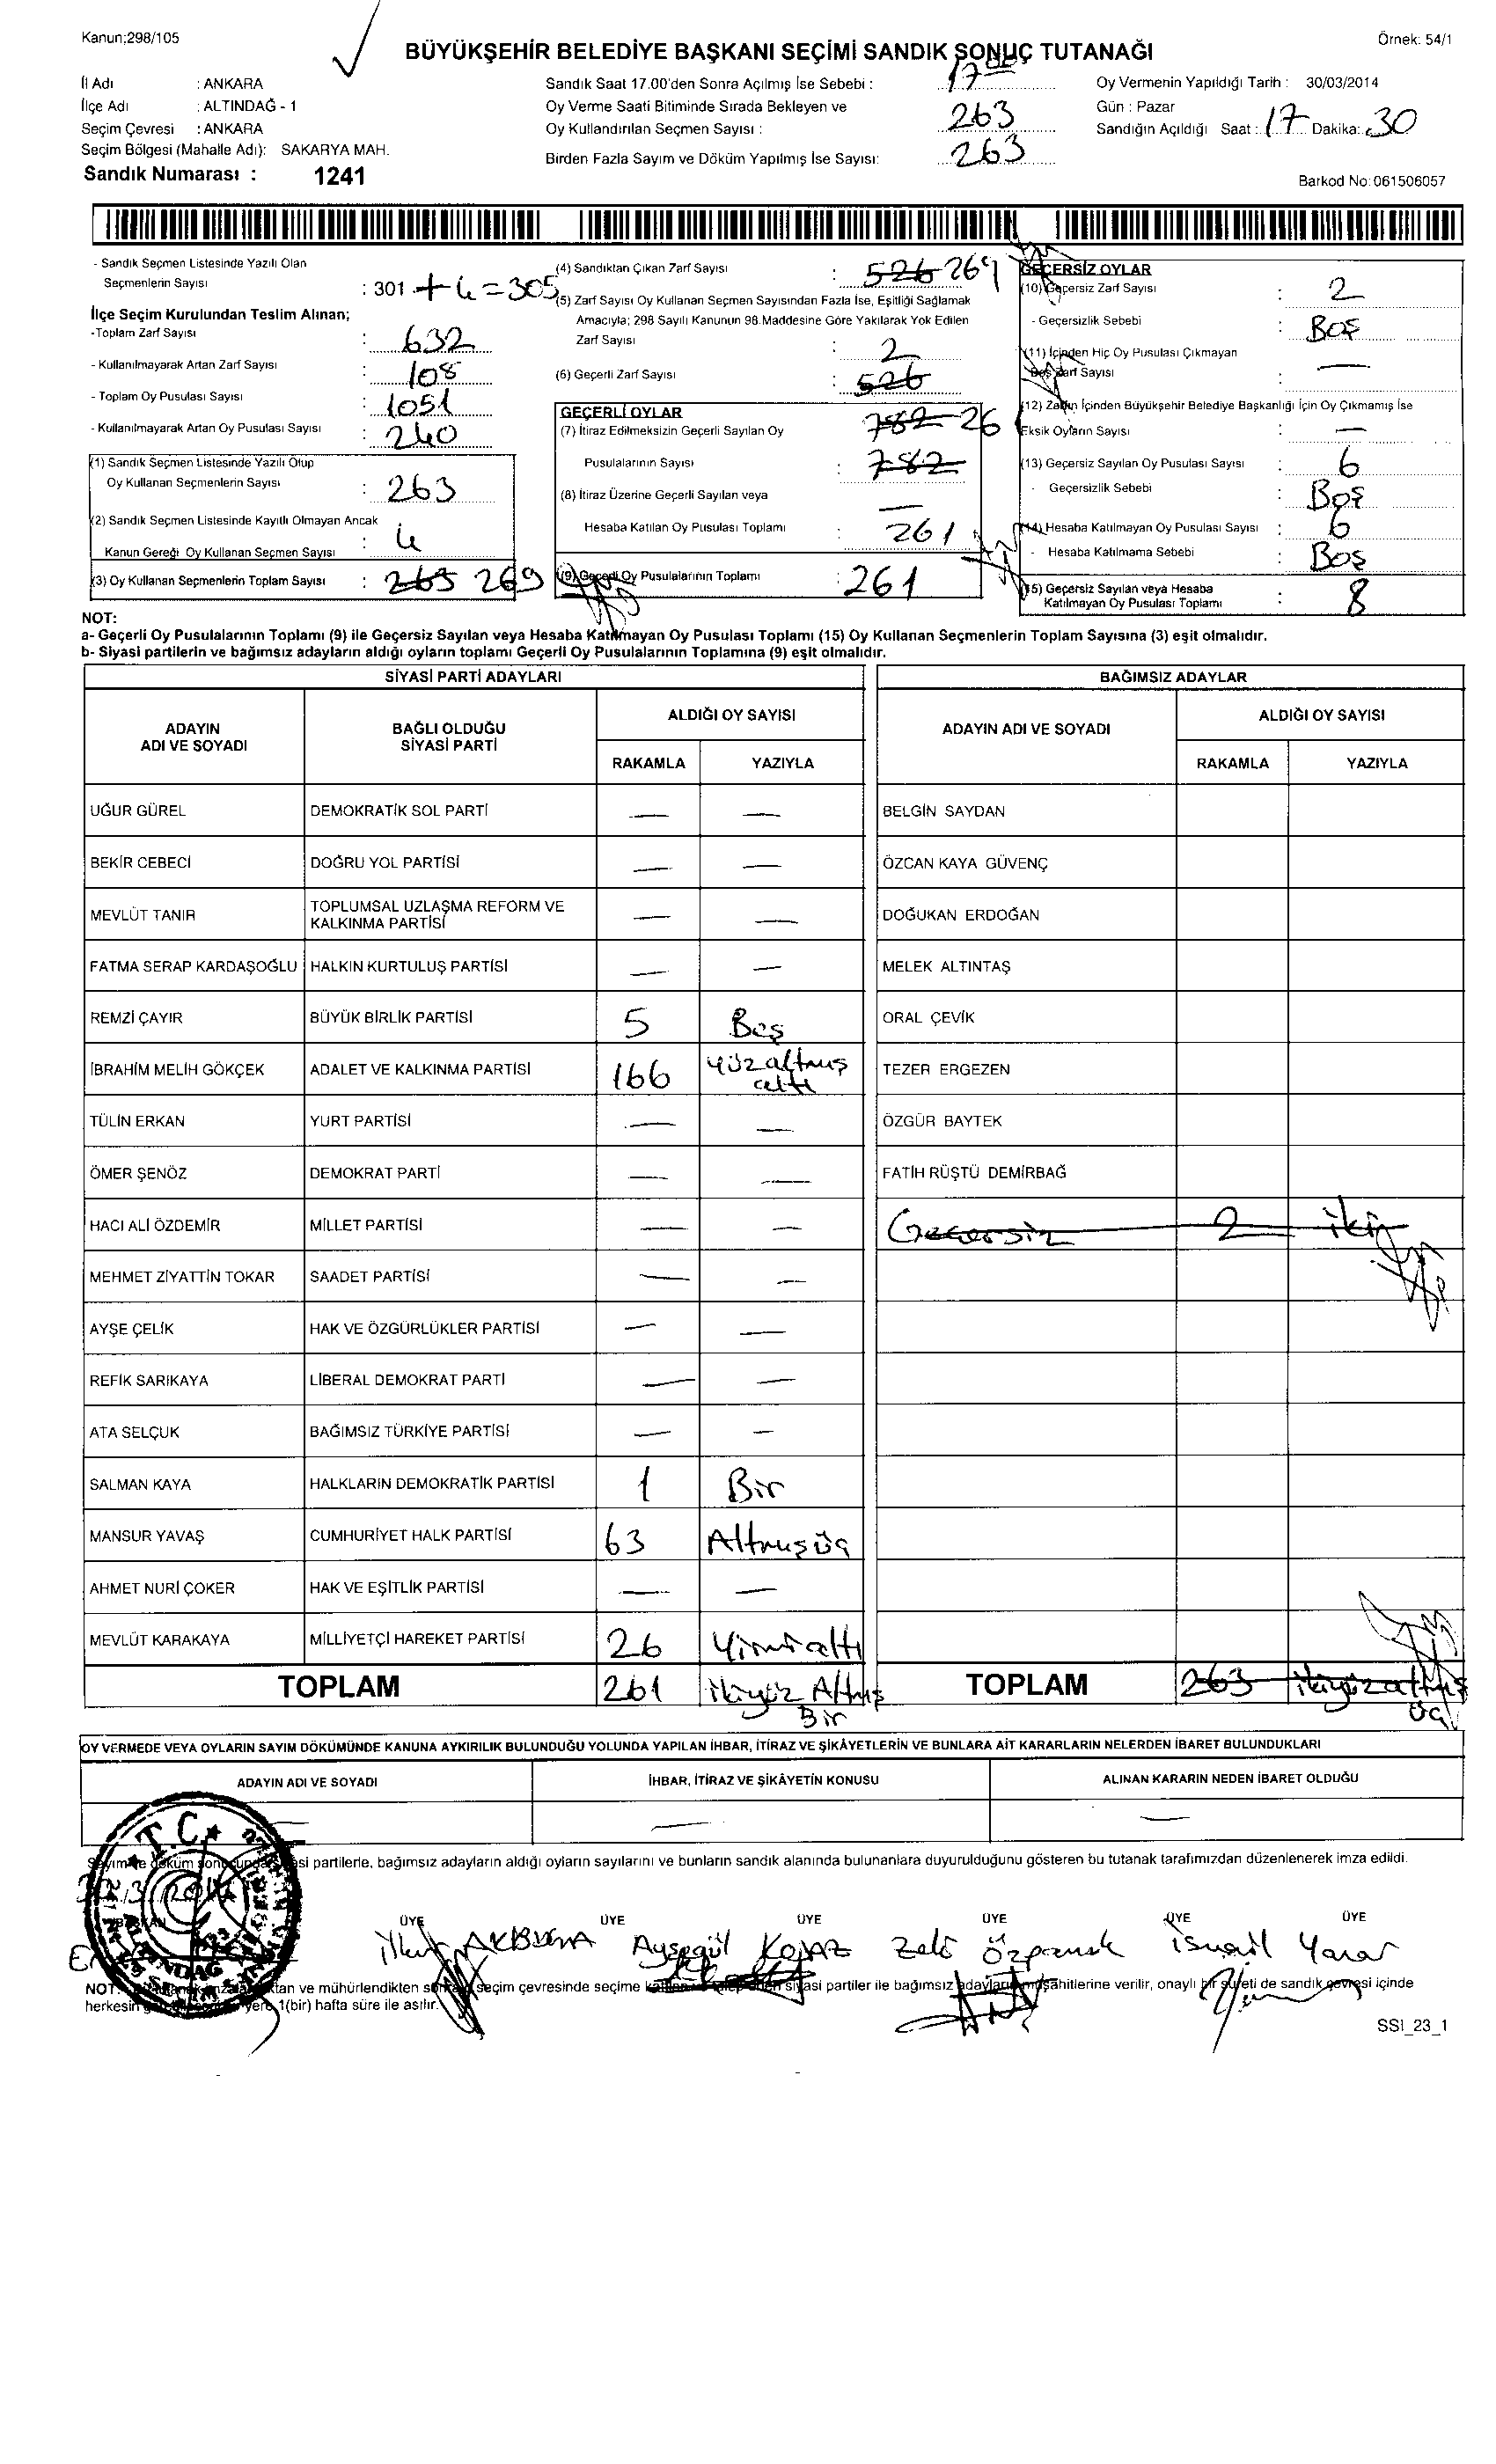 Kanun;298/105
Örnek: 54/1
BÜYÜKŞEHİR BELEDİYE BAŞKANI SEÇİMİ SANDIK SONUÇ TUTANAĞI
İl Adı : ANKARA
İlçe Adı : ALTINDAĞ - 1
Seçim Çevresi : ANKARA
Seçim Bölgesi (Mahalle Adı): SAKARYA MAH.
Sandık Numarası : 1241
Sandık Saat 17.00'den Sonra Açılmış İse Sebebi : 17
Oy Verme Saati Bitiminde Sırada Bekleyen ve
Oy Kullandırılan Seçmen Sayısı : 263
Birden Fazla Sayım ve Döküm Yapılmış İse Sayısı: 263
Oy Vermenin Yapıldığı Tarih : 30/03/2014
Gün : Pazar
Sandığın Açıldığı Saat : 17 Dakika: 30
Barkod No: 061506057
- Sandık Seçmen Listesinde Yazılı Olan
Seçmenlerin Sayısı : 301 + 4 = 305
İlçe Seçim Kurulundan Teslim Alınan;
-Toplam Zarf Sayısı : 632
- Kullanılmayarak Artan Zarf Sayısı : 108
- Toplam Oy Pusulası Sayısı : 1051
- Kullanılmayarak Artan Oy Pusulası Sayısı : 240
(1) Sandık Seçmen Listesinde Yazılı Olup
Oy Kullanan Seçmenlerin Sayısı : 263
(2) Sandık Seçmen Listesinde Kayıtlı Olmayan Ancak
Kanun Gereği Oy Kullanan Seçmen Sayısı : 4
(3) Oy Kullanan Seçmenlerin Toplam Sayısı : 265 269
(4) Sandıktan Çıkan Zarf Sayısı : 526 269
(5) Zarf Sayısı Oy Kullanan Seçmen Sayısından Fazla İse, Eşitliği Sağlamak
Amacıyla; 298 Sayılı Kanunun 98.Maddesine Göre Yakılarak Yok Edilen
Zarf Sayısı : 2
(6) Geçerli Zarf Sayısı : 526
GEÇERLİ OYLAR
(7) İtiraz Edilmeksizin Geçerli Sayılan Oy 782 26
Pusulalarının Sayısı : 782
(8) İtiraz Üzerine Geçerli Sayılan veya —
Hesaba Katılan Oy Pusulası Toplamı : 261
(9) Geçerli Oy Pusulalarının Toplamı : 261
GEÇERSİZ OYLAR
(10) Geçersiz Zarf Sayısı : 2
- Geçersizlik Sebebi : Boş
(11) İçinden Hiç Oy Pusulası Çıkmayan
Boş Zarf Sayısı : —
(12) Zarfın İçinden Büyükşehir Belediye Başkanlığı İçin Oy Çıkmamış İse
Eksik Oyların Sayısı : —
(13) Geçersiz Sayılan Oy Pusulası Sayısı : 6
- Geçersizlik Sebebi : Boş
(14) Hesaba Katılmayan Oy Pusulası Sayısı : 6
- Hesaba Katılmama Sebebi : Boş
(15) Geçersiz Sayılan veya Hesaba
Katılmayan Oy Pusulası Toplamı : 8
NOT:
a- Geçerli Oy Pusulalarının Toplamı (9) ile Geçersiz Sayılan veya Hesaba Katılmayan Oy Pusulası Toplamı (15) Oy Kullanan Seçmenlerin Toplam Sayısına (3) eşit olmalıdır.
b- Siyasi partilerin ve bağımsız adayların aldığı oyların toplamı Geçerli Oy Pusulalarının Toplamına (9) eşit olmalıdır.
SİYASİ PARTİ ADAYLARI
ADAYIN ADI VE SOYADI BAĞLI OLDUĞU SİYASİ PARTİ ALDIĞI OY SAYISI
RAKAMLA YAZIYLA
UĞUR GÜREL DEMOKRATİK SOL PARTİ — —
BEKİR CEBECİ DOĞRU YOL PARTİSİ — —
MEVLÜT TANIR TOPLUMSAL UZLAŞMA REFORM VE KALKINMA PARTİSİ — —
FATMA SERAP KARDAŞOĞLU HALKIN KURTULUŞ PARTİSİ — —
REMZİ ÇAYIR BÜYÜK BİRLİK PARTİSİ 5 Beş
İBRAHİM MELİH GÖKÇEK ADALET VE KALKINMA PARTİSİ 166 Yüzaltmış altı
TÜLİN ERKAN YURT PARTİSİ — —
ÖMER ŞENÖZ DEMOKRAT PARTİ — —
HACI ALİ ÖZDEMİR MİLLET PARTİSİ — —
MEHMET ZİYATTİN TOKAR SAADET PARTİSİ — —
AYŞE ÇELİK HAK VE ÖZGÜRLÜKLER PARTİSİ — —
REFİK SARIKAYA LİBERAL DEMOKRAT PARTİ — —
ATA SELÇUK BAĞIMSIZ TÜRKİYE PARTİSİ — —
SALMAN KAYA HALKLARIN DEMOKRATİK PARTİSİ 1 Bir
MANSUR YAVAŞ CUMHURİYET HALK PARTİSİ 63 Altmışüç
AHMET NURİ ÇOKER HAK VE EŞİTLİK PARTİSİ — —
MEVLÜT KARAKAYA MİLLİYETÇİ HAREKET PARTİSİ 26 Yirmialtı
TOPLAM 261 ikiyüz Altmış Bir
BAĞIMSIZ ADAYLAR
ADAYIN ADI VE SOYADI ALDIĞI OY SAYISI
RAKAMLA YAZIYLA
BELGİN SAYDAN
ÖZCAN KAYA GÜVENÇ
DOĞUKAN ERDOĞAN
MELEK ALTINTAŞ
ORAL ÇEVİK
TEZER ERGEZEN
ÖZGÜR BAYTEK
FATİH RÜŞTÜ DEMİRBAĞ
Geçersiz 2 iki
TOPLAM 263 ikiyüzaltmış üç
OY VERMEDE VEYA OYLARIN SAYIM DÖKÜMÜNDE KANUNA AYKIRILIK BULUNDUĞU YOLUNDA YAPILAN İHBAR, İTİRAZ VE ŞİKÂYETLERİN VE BUNLARA AİT KARARLARIN NELERDEN İBARET BULUNDUKLARI
ADAYIN ADI VE SOYADI İHBAR, İTİRAZ VE ŞİKÂYETİN KONUSU ALINAN KARARIN NEDEN İBARET OLDUĞU
— — —
Sayım ve döküm sonucunda siyasi partilerle, bağımsız adayların aldığı oyların sayılarını ve bunların sandık alanında bulunanlara duyurulduğunu gösteren bu tutanak tarafımızdan düzenlenerek imza edildi.
T.C.
BAŞKAN ÜYE ÜYE ÜYE ÜYE ÜYE ÜYE
AKBUĞA Ayşegül KOJAZ Özparmak ismail Yanar
NOT: ve mühürlendikten seçim çevresinde seçime siyasi partiler ile bağımsız adayların müşahitlerine verilir, onaylı bir sureti de sandık çevresi içinde
herkesin yere 1(bir) hafta süre ile asılır.
SSI_23_1